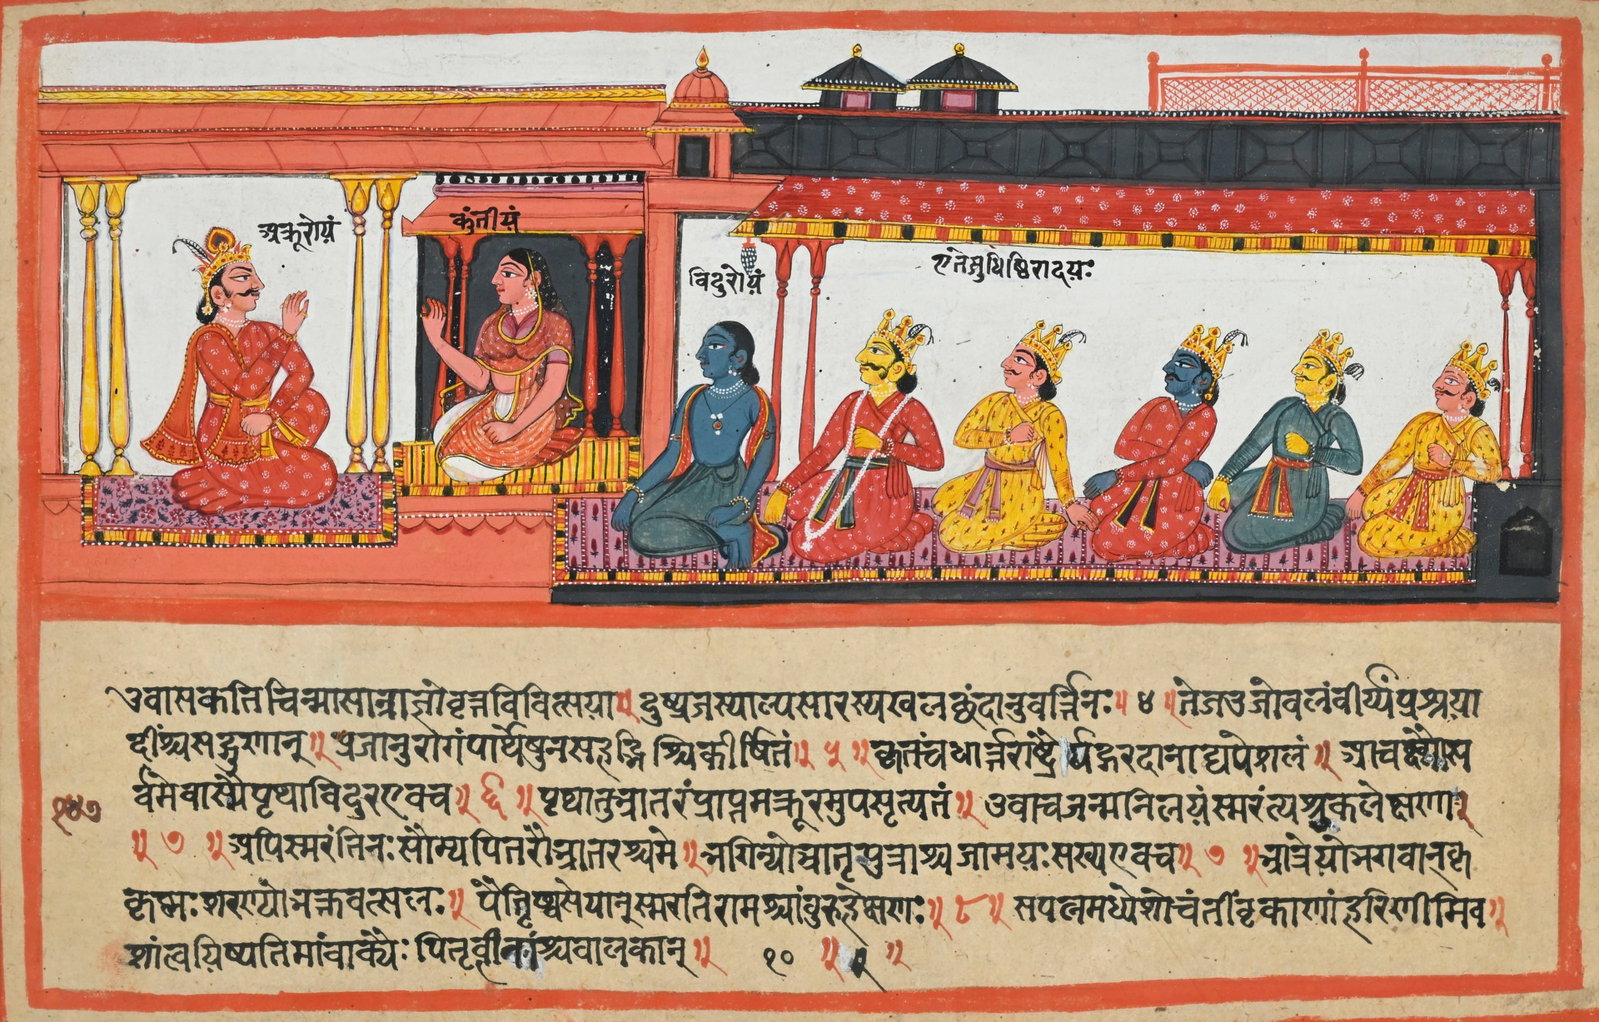 अक्रूरोयं
कुंतीयं
विदुरोयं
एतेयुधिष्ठिरादयः
उवासकतिचिन्मासान्राज्ञोवृत्तविवित्सया॥दुष्प्रजस्याल्पसारस्यखलछंदानुवर्त्तिनः॥४॥तेजउजोबलंवीर्य्यंप्रश्रया
दींश्चसद्गुणान्॥प्रजानुरागंपार्थेषुनसहद्भिश्चिकीर्षितं॥५॥कृतंचधार्त्तराष्ट्रैर्यद्गरदानाद्यपेशलं॥आचख्यौस
र्वमेवास्मैपृथाविदुरएवच॥६॥पृथातुभ्रातरंप्राप्तमक्रूरमुपसृत्यतं॥उवाचजन्मनिलयंस्मरंत्यश्रुकलेक्षणा॥
२४७
॥७॥अपिस्मरंतिनःसौम्यपितरौभ्रातरश्चमे॥भगिन्योभ्रातृपुत्राश्चजामयःसख्यएवच॥७॥भ्रात्रेयोभगवान्कृ
कृष्णःशरण्योभक्तवत्सलः॥पैतृष्वसेयानुस्मरतिरामश्चांबुरुहेक्षणः॥८॥सपत्नमध्येशोचंतींवृकाणांहरिणीमिव॥
शांत्वयिष्यतिमांवाक्यैःपितृहीनांश्चबालकान्॥१०॥॥